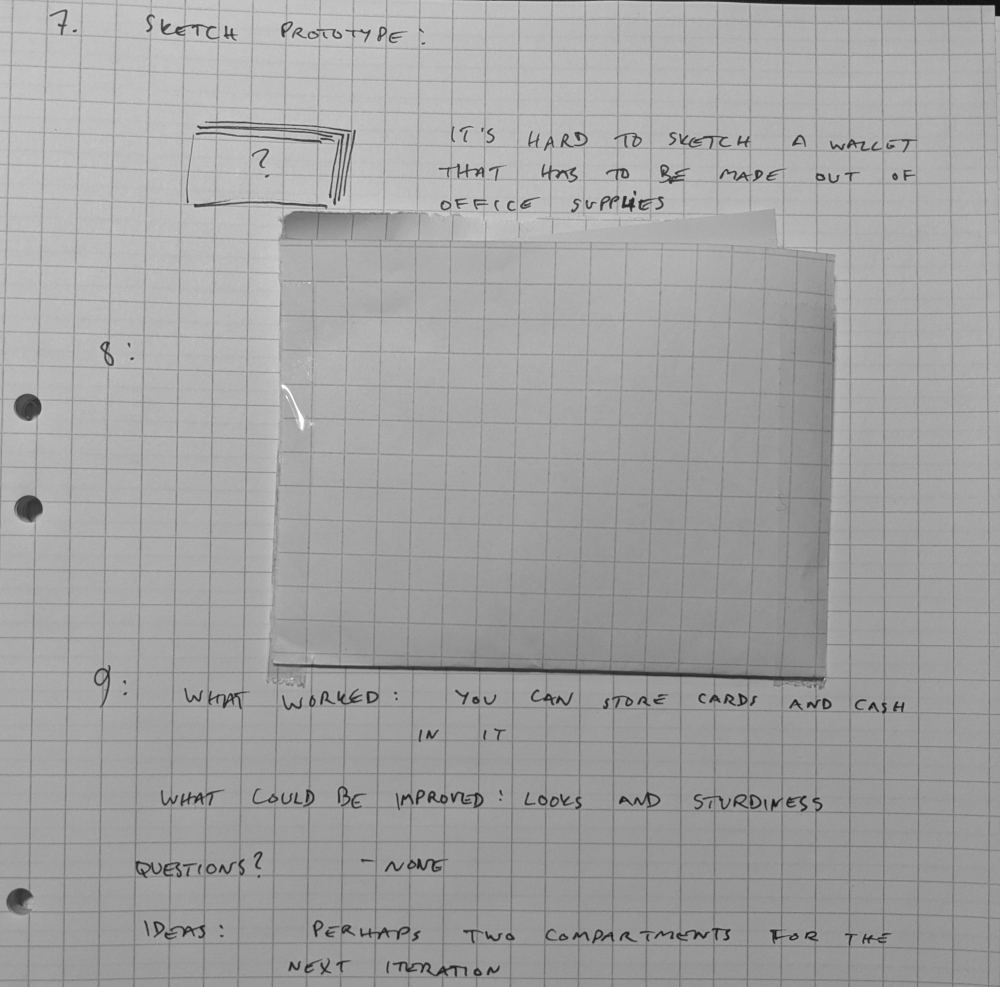 7. SKETCH PROTOTYPE:
?
IT'S HARD TO SKETCH A WALLET
THAT HAS TO BE MADE OUT OF
OFFICE SUPPLIES
8:
9: WHAT WORKED: YOU CAN STORE CARDS AND CASH
IN IT
WHAT COULD BE IMPROVED: LOOKS AND STURDINESS
QUESTIONS? - NONE
IDEAS: PERHAPS TWO COMPARTMENTS FOR THE
NEXT ITERATION